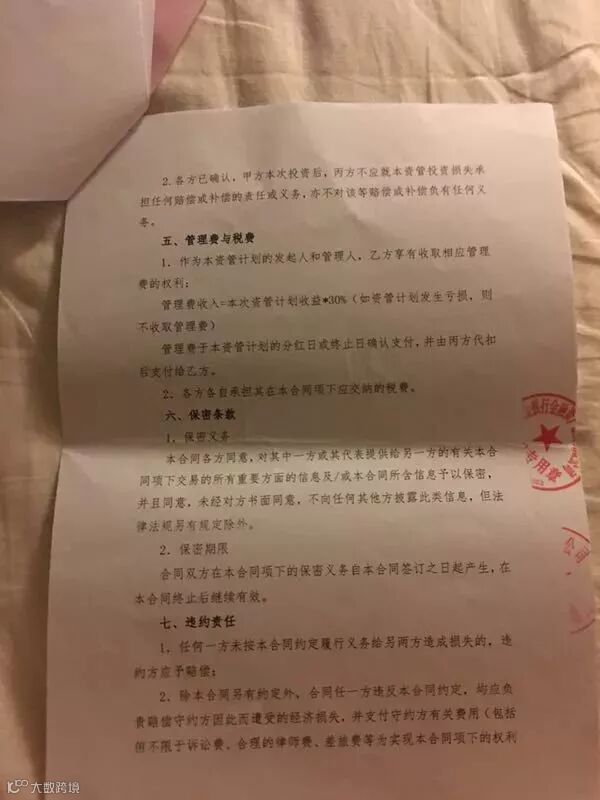 2.各方已确认，甲方本次投资后，丙方不应就本资管投资损失承
担任何赔偿或补偿的责任或义务，亦不对该等赔偿或补偿负有任何义
务。
五、管理费与税费
1. 作为本资管计划的发起人和管理人，乙方享有收取相应管理
费的权利；
管理费收入=本次资管计划收益*30%（如资管计划发生亏损，则
不收取管理费）
管理费于本资管计划的分红日或终止日确认支付，并由丙方代扣
后支付给乙方。
2. 各方各自承担其在本合同项下应交纳的税费。
六、保密条款
1. 保密义务
本合同各方同意，对其中一方或其代表提供给另一方的有关本合
同项下交易的所有重要方面的信息及/或本合同所含信息予以保密，
并且同意，未经对方书面同意，不向任何其他方披露此类信息，但法
律法规另有规定除外。
2. 保密期限
合同双方在本合同项下的保密义务自本合同签订之日起产生，在
本合同终止后继续有效。
七、违约责任
1. 任何一方未按本合同约定履行义务给另两方造成损失的，违
约方应予赔偿；
2. 除本合同另有约定外，合同任一方违反本合同约定，均应负
责赔偿守约方因此而遭受的经济损失，并支付守约方有关费用（包括
但不限于诉讼费、合理的律师费、差旅费等为实现本合同项下的权利
银行金融
专用章
公司
大数跨境